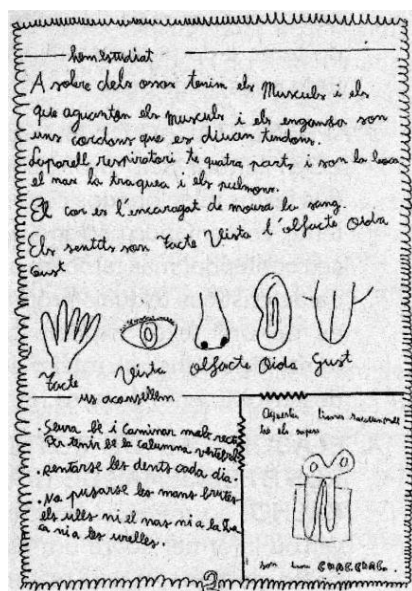 hem estudiat
A sobre dels ossos tenim els Musculs i els
que aguanten els musculs i els enganxa son
uns cordons que es diuen tendons.
L'aparell respiratori te quatre parts, i son la boca
el nas la traquea i els pulmons.
El cor es l'encaragat de moura la sang.
Els sentits son Tacte Vista l'olfacte Oida
Gust
Tacte Vista olfacte Oida Gust
us aconsellem
. Seura bé i caminar molt recte
Per tenir bé la columna vertebral
. rentarse les dents cada dia.
. No posarse les mans brutes
els ulls ni el nas ni a la bo
ca ni a les orelles.
Aquesta
els
son uns
2